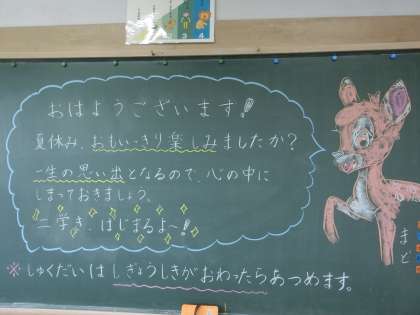 おはようございます!
夏休み、おもいっきり楽しみましたか?
一生の思い出となるので、心の中に
しまっておきましょう。
二学き、はじまるよ〜!
※しゅくだいはしぎょうしきがおわったらあつめます。
まど
3 4